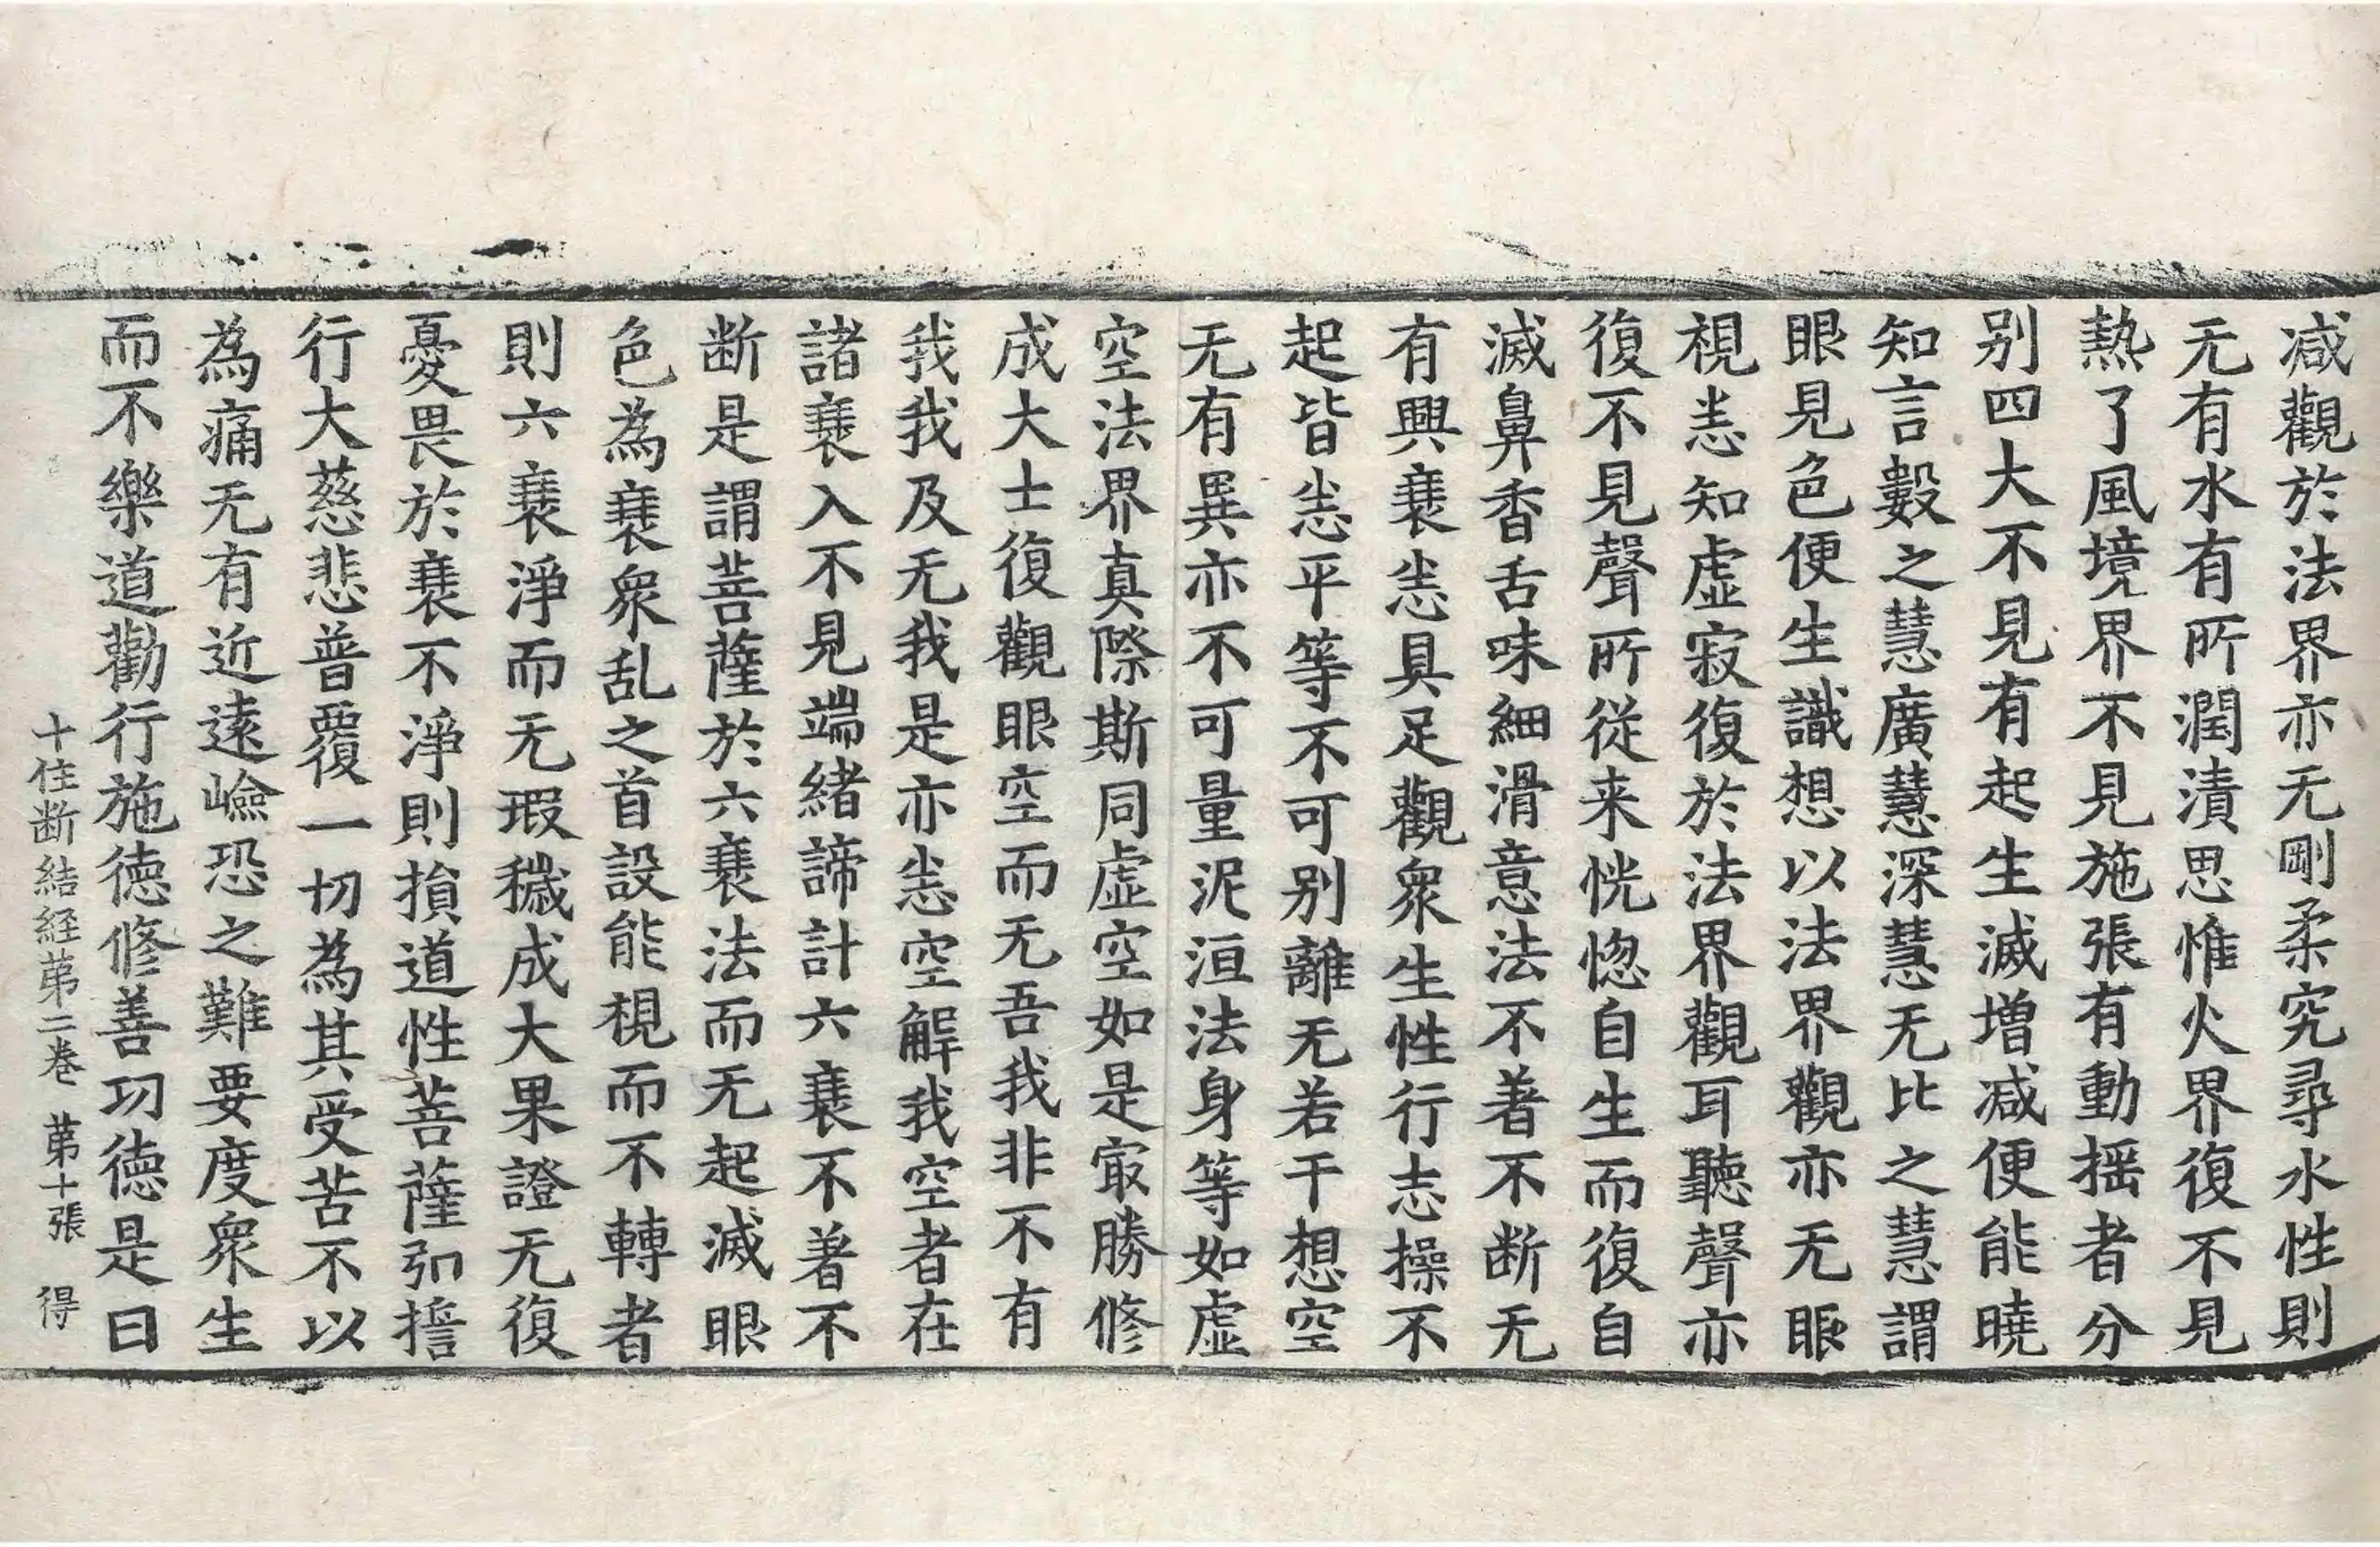 减觀於法界亦无剛柔究尋水性則
无有水有所潤漬思惟火界復不見
熱了風境界不見施張有動揺者分
别四大不見有起生滅增减便能曉
知言數之慧廣慧深慧无比之慧謂
眼見色便生識想以法界觀亦无眼
視恚知虛寂復於法界觀耳聽聲亦
復不見聲所從来恍惚自生而復自
滅鼻香舌味細滑意法不著不断无
有興衰恚具足觀衆生性行志操不
起皆恚平等不可别離无若干想空
无有異亦不可量泥洹法身等如虛
空法界真際斯同虛空如是㝡勝修
成大士復觀眼空而无吾我非不有
我我及无我是亦恚空解我空者在
諸衰入不見端緒諦計六衰不著不
断是謂菩薩於六衰法而无起滅眼
色為衰衆乱之首設能視而不轉者
則六衰淨而无瑕穢成大果證无復
憂畏於衰不淨則損道性菩薩弘擔
行大慈悲普覆一切為其受苦不以
為痛无有近遠嶮恐之難要度衆生
而不樂道勸行施徳修善功徳是曰
十住断結経苐二卷 苐十張 得